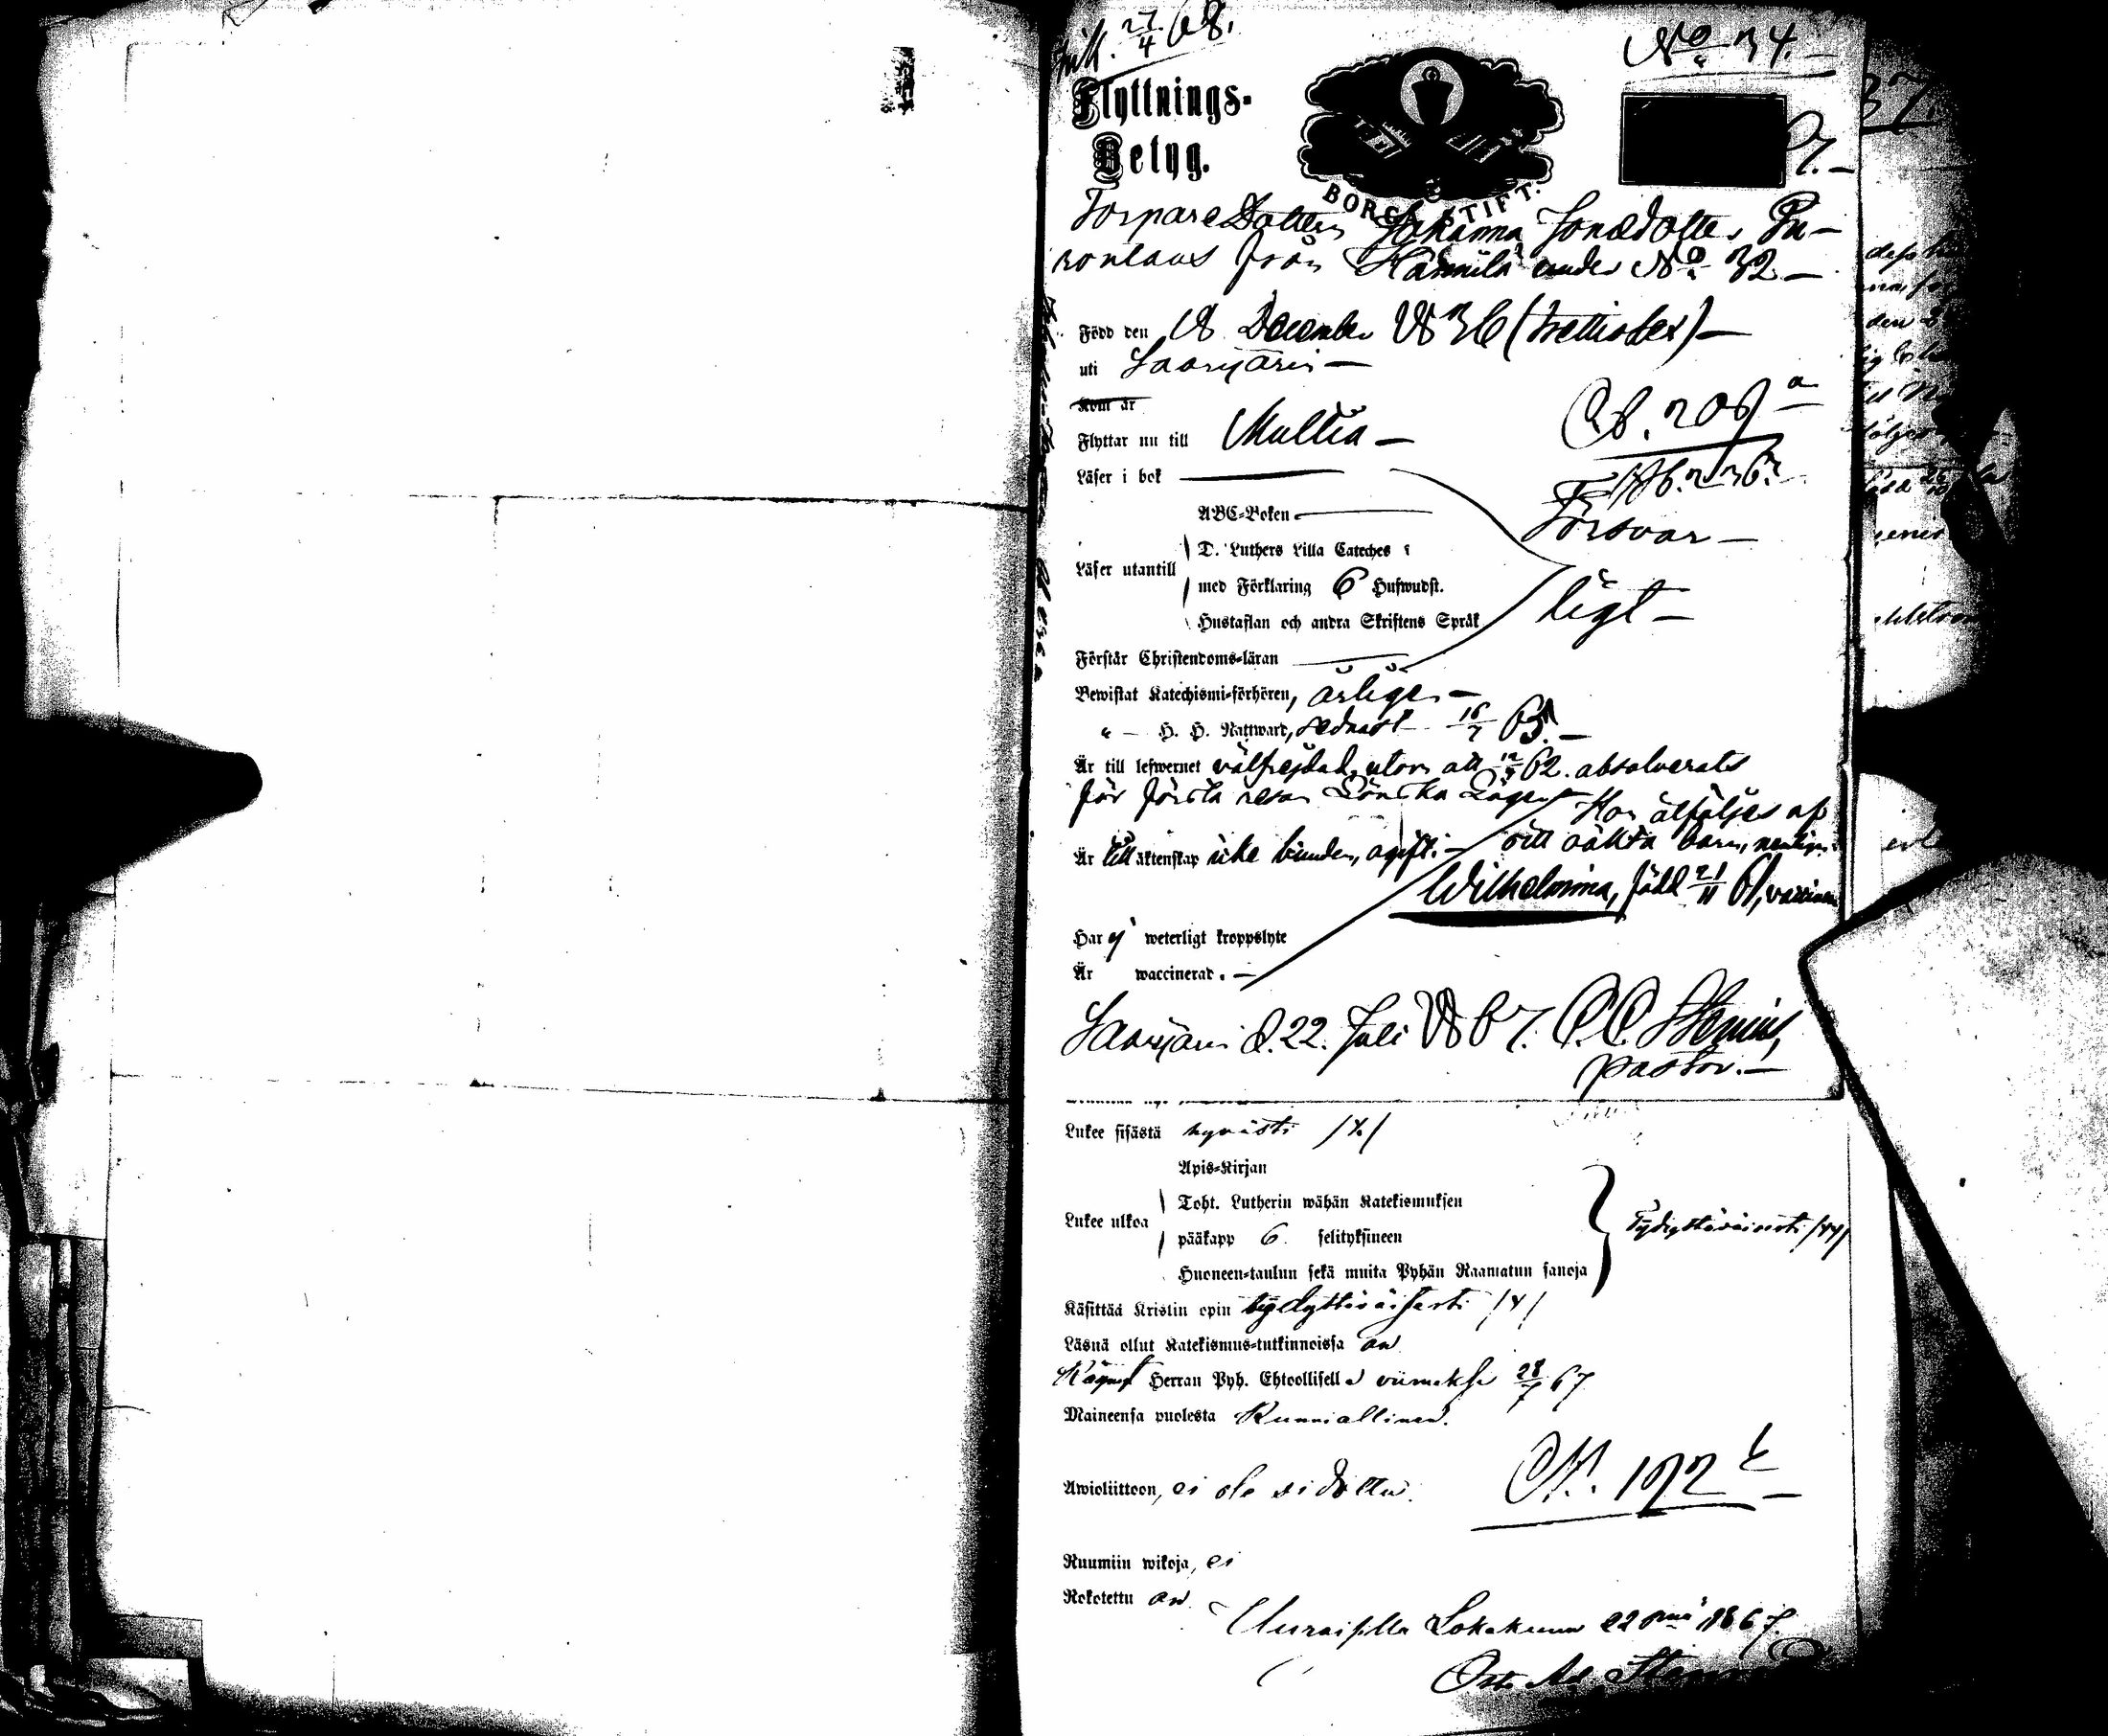 27/4 68.
No 34.
Flyttnings-
Betyg.
BORGÅ STIFT.
Torpare Dottern Johanna Jonædotter Pu-
ronlaus från Hännilä under No 32 —
Född den 18 December 1836 (trettiosex) —
uti Saarijärvi —
Kom år
Flyttar nu till Multia —
Läser i bok
ABC-Boken
Försvar —
D. Luthers Lilla Cateches
Läser utantill
med Förklaring 6 Hufwudst.
ligt —
Hustaflan och andra Skriftens Språk
Förstår Christendoms-läran
Bewistat Katechismi-förhören, årligen —
" — H. H. Nattward, sednast 16/7 65. —
Är till lefwernet välfrejdad, utom att 62. absolverats
för första resan Lönska Läger — Hon åtföljes af
Är till äktenskap icke bunden, ogift. — sitt oäkta barn, nemligen:
Wilhelmina, född 21/11 61, vaccinerad
Har ej weterligt kroppslyte
Är waccinerad. —
Saarijärvi d. 22. Juli 1867. C. C. Stenius,
pastor. —
Lukee sisästä hyvästi /X/
Apis-Kirjan
Toht. Lutherin wähän Katekismuksen
Lukee ulkoa
pääkapp 6. selityksineen
Tydyttäväisesti /YY/
Huoneen-taulun sekä muita Pyhän Raamatun sanoja
Käsittää Kristin opin tydyttäväisesti /Y/
Läsnä ollut Katekismus-tutkinnoissa on
Käynyt Herran Pyh. Ehtoollisella viimeksi 28/7 67
Maineensa puolesta Kunniallinen.
Awioliittoon, ei ole sidottu.
Ruumiin wikoja, ei
Rokotettu on
Uuraisilla Lokakuun 22 pnä 1867.